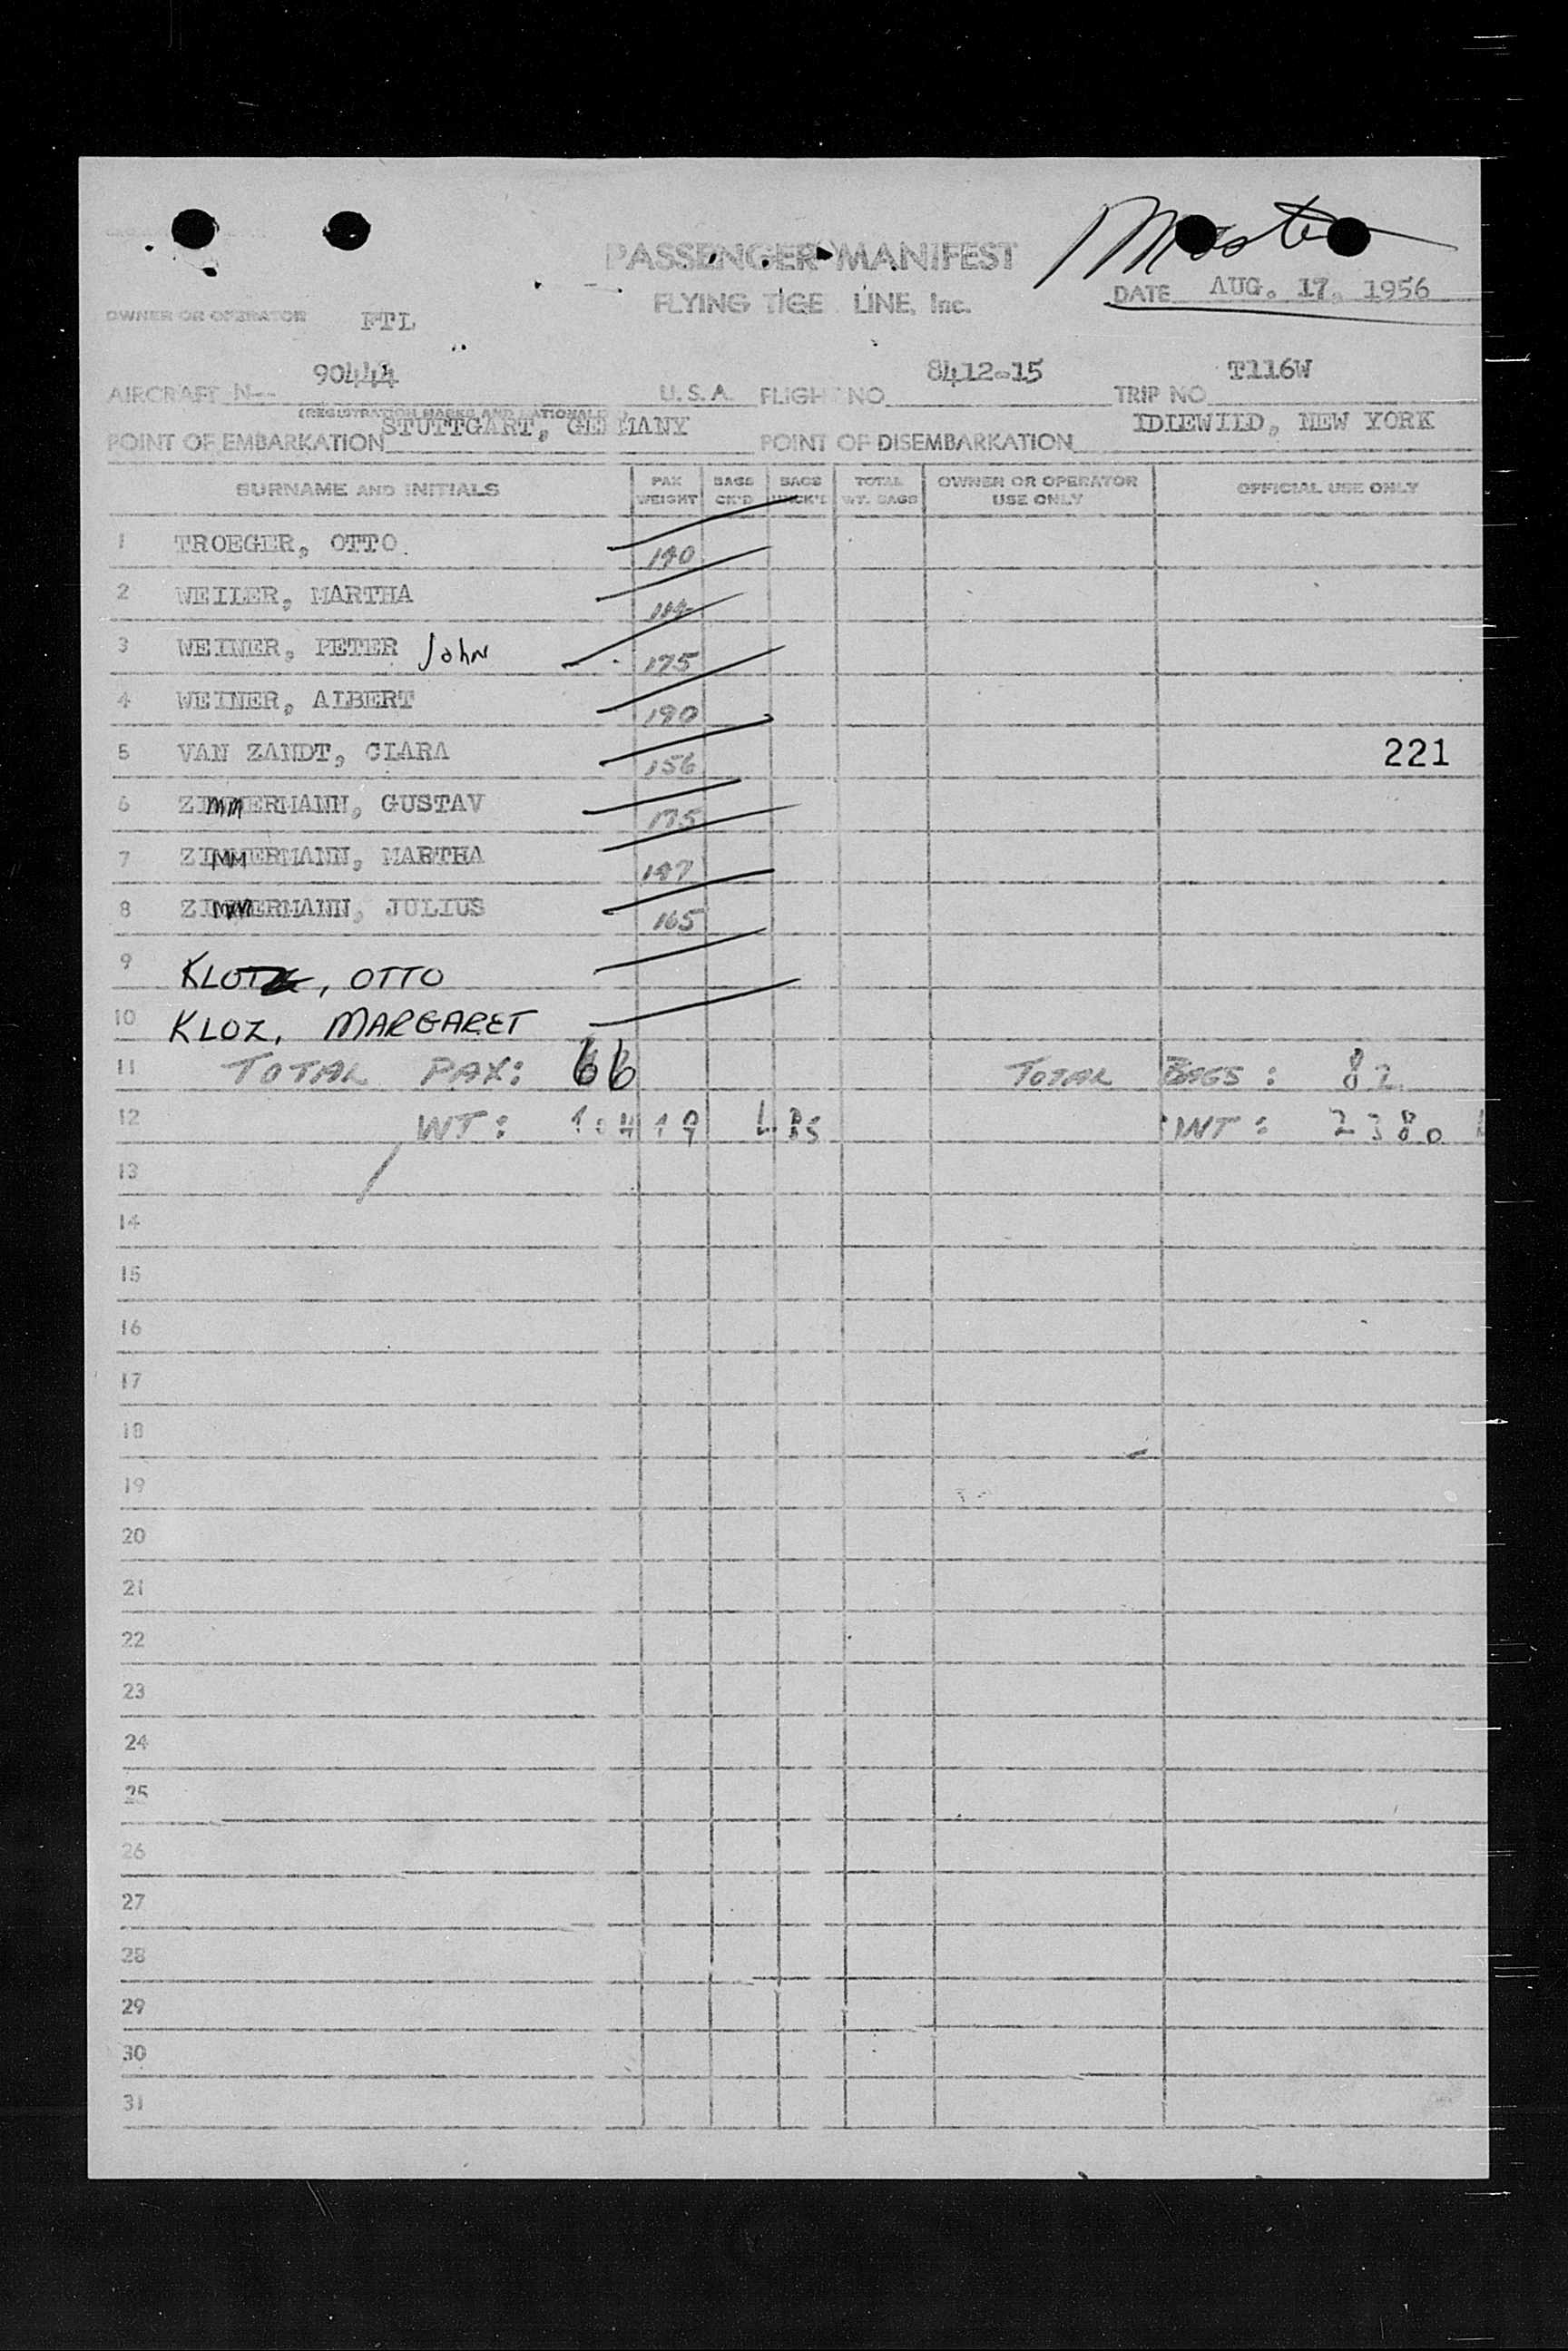 Master
PASSENGER MANIFEST
FLYING TIGE LINE, Inc.
DATE AUG. 17, 1956
OWNER OR OPERATOR FTL
AIRCRAFT N-- 90444 U. S. A. FLIGHT NO 8412-15 TRIP NO T116W
(REGISTRATION MARKS AND NATIONALITY)
POINT OF EMBARKATION STUTTGART, GERMANY POINT OF DISEMBARKATION IDLEWILD, NEW YORK
SURNAME AND INITIALS PAX WEIGHT BAGS CK'D BAGS UNCK'D TOTAL WT. BAGS OWNER OR OPERATOR USE ONLY OFFICIAL USE ONLY
1 TROEGER, OTTO 190
2 WEILER, MARTHA
3 WEINER, PETER John 175
4 WEINER, ALBERT 190
5 VAN ZANDT, CLARA 156 221
6 ZIMMERMANN, GUSTAV 175
7 ZIMMERMANN, MARTHA 147
8 ZIMMERMANN, JULIUS 165
9 , OTTO
10 KLOZ, MARGARET
11 TOTAL PAX: 66 TOTAL BAGS: 82
12 WT: 10419 LBS WT: 2380
13
14
15
16
17
18
19
20
21
22
23
24
25
26
27
28
29
30
31